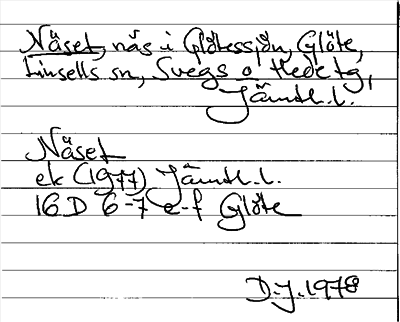 Näset, näs i Glötessjön, Glöte,
Linsells sn, Svegs o Hede tg,
Jämtl.l.
Näset
ek (1977) Jämtl.l.
16D 6-7 e-f Glöte
D.J.1978